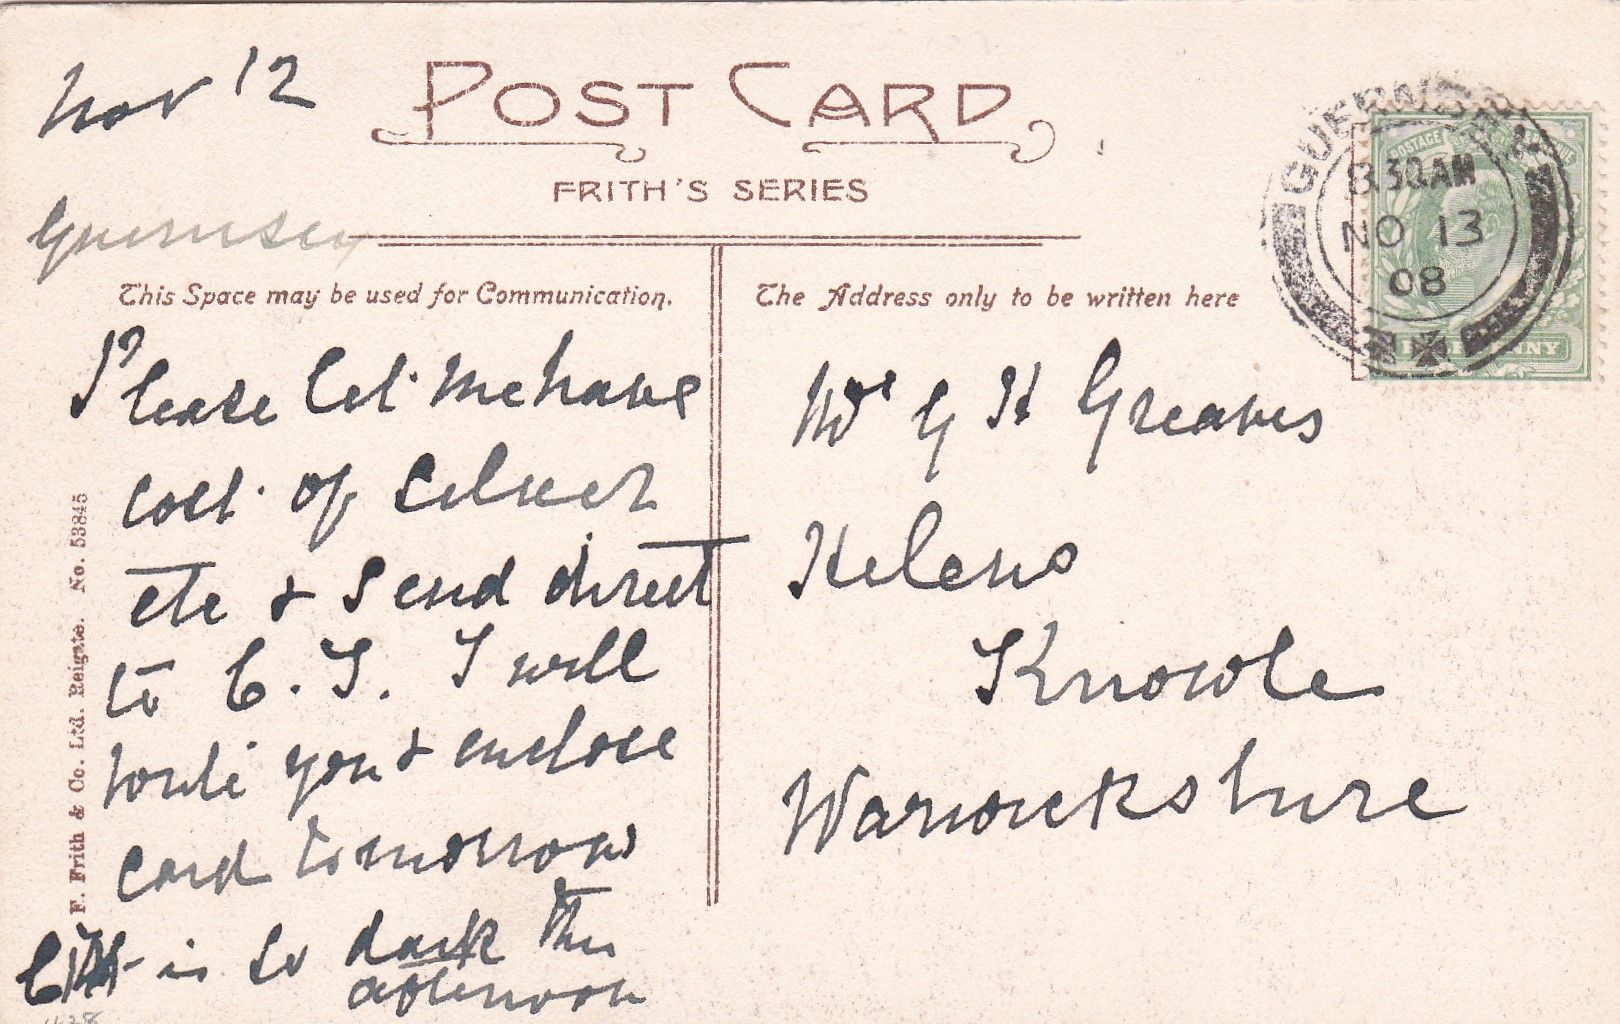 Nov 12
POST CARD
FRITH'S SERIES
Guernsey
This Space may be used for Communication.
The Address only to be written here
GUERNSEY
8.30AM
NO 13
08
POSTAGE
HALFPENNY
Please let me have
cost of
etc & send direct
to C. I. I will
write you & enclose
card tomorrow
is so dark this
afternoon
Mrs G H Greaves
Helens
Knowle
Warwickshire
F. Frith & Co. Ltd. Reigate. No. 53845